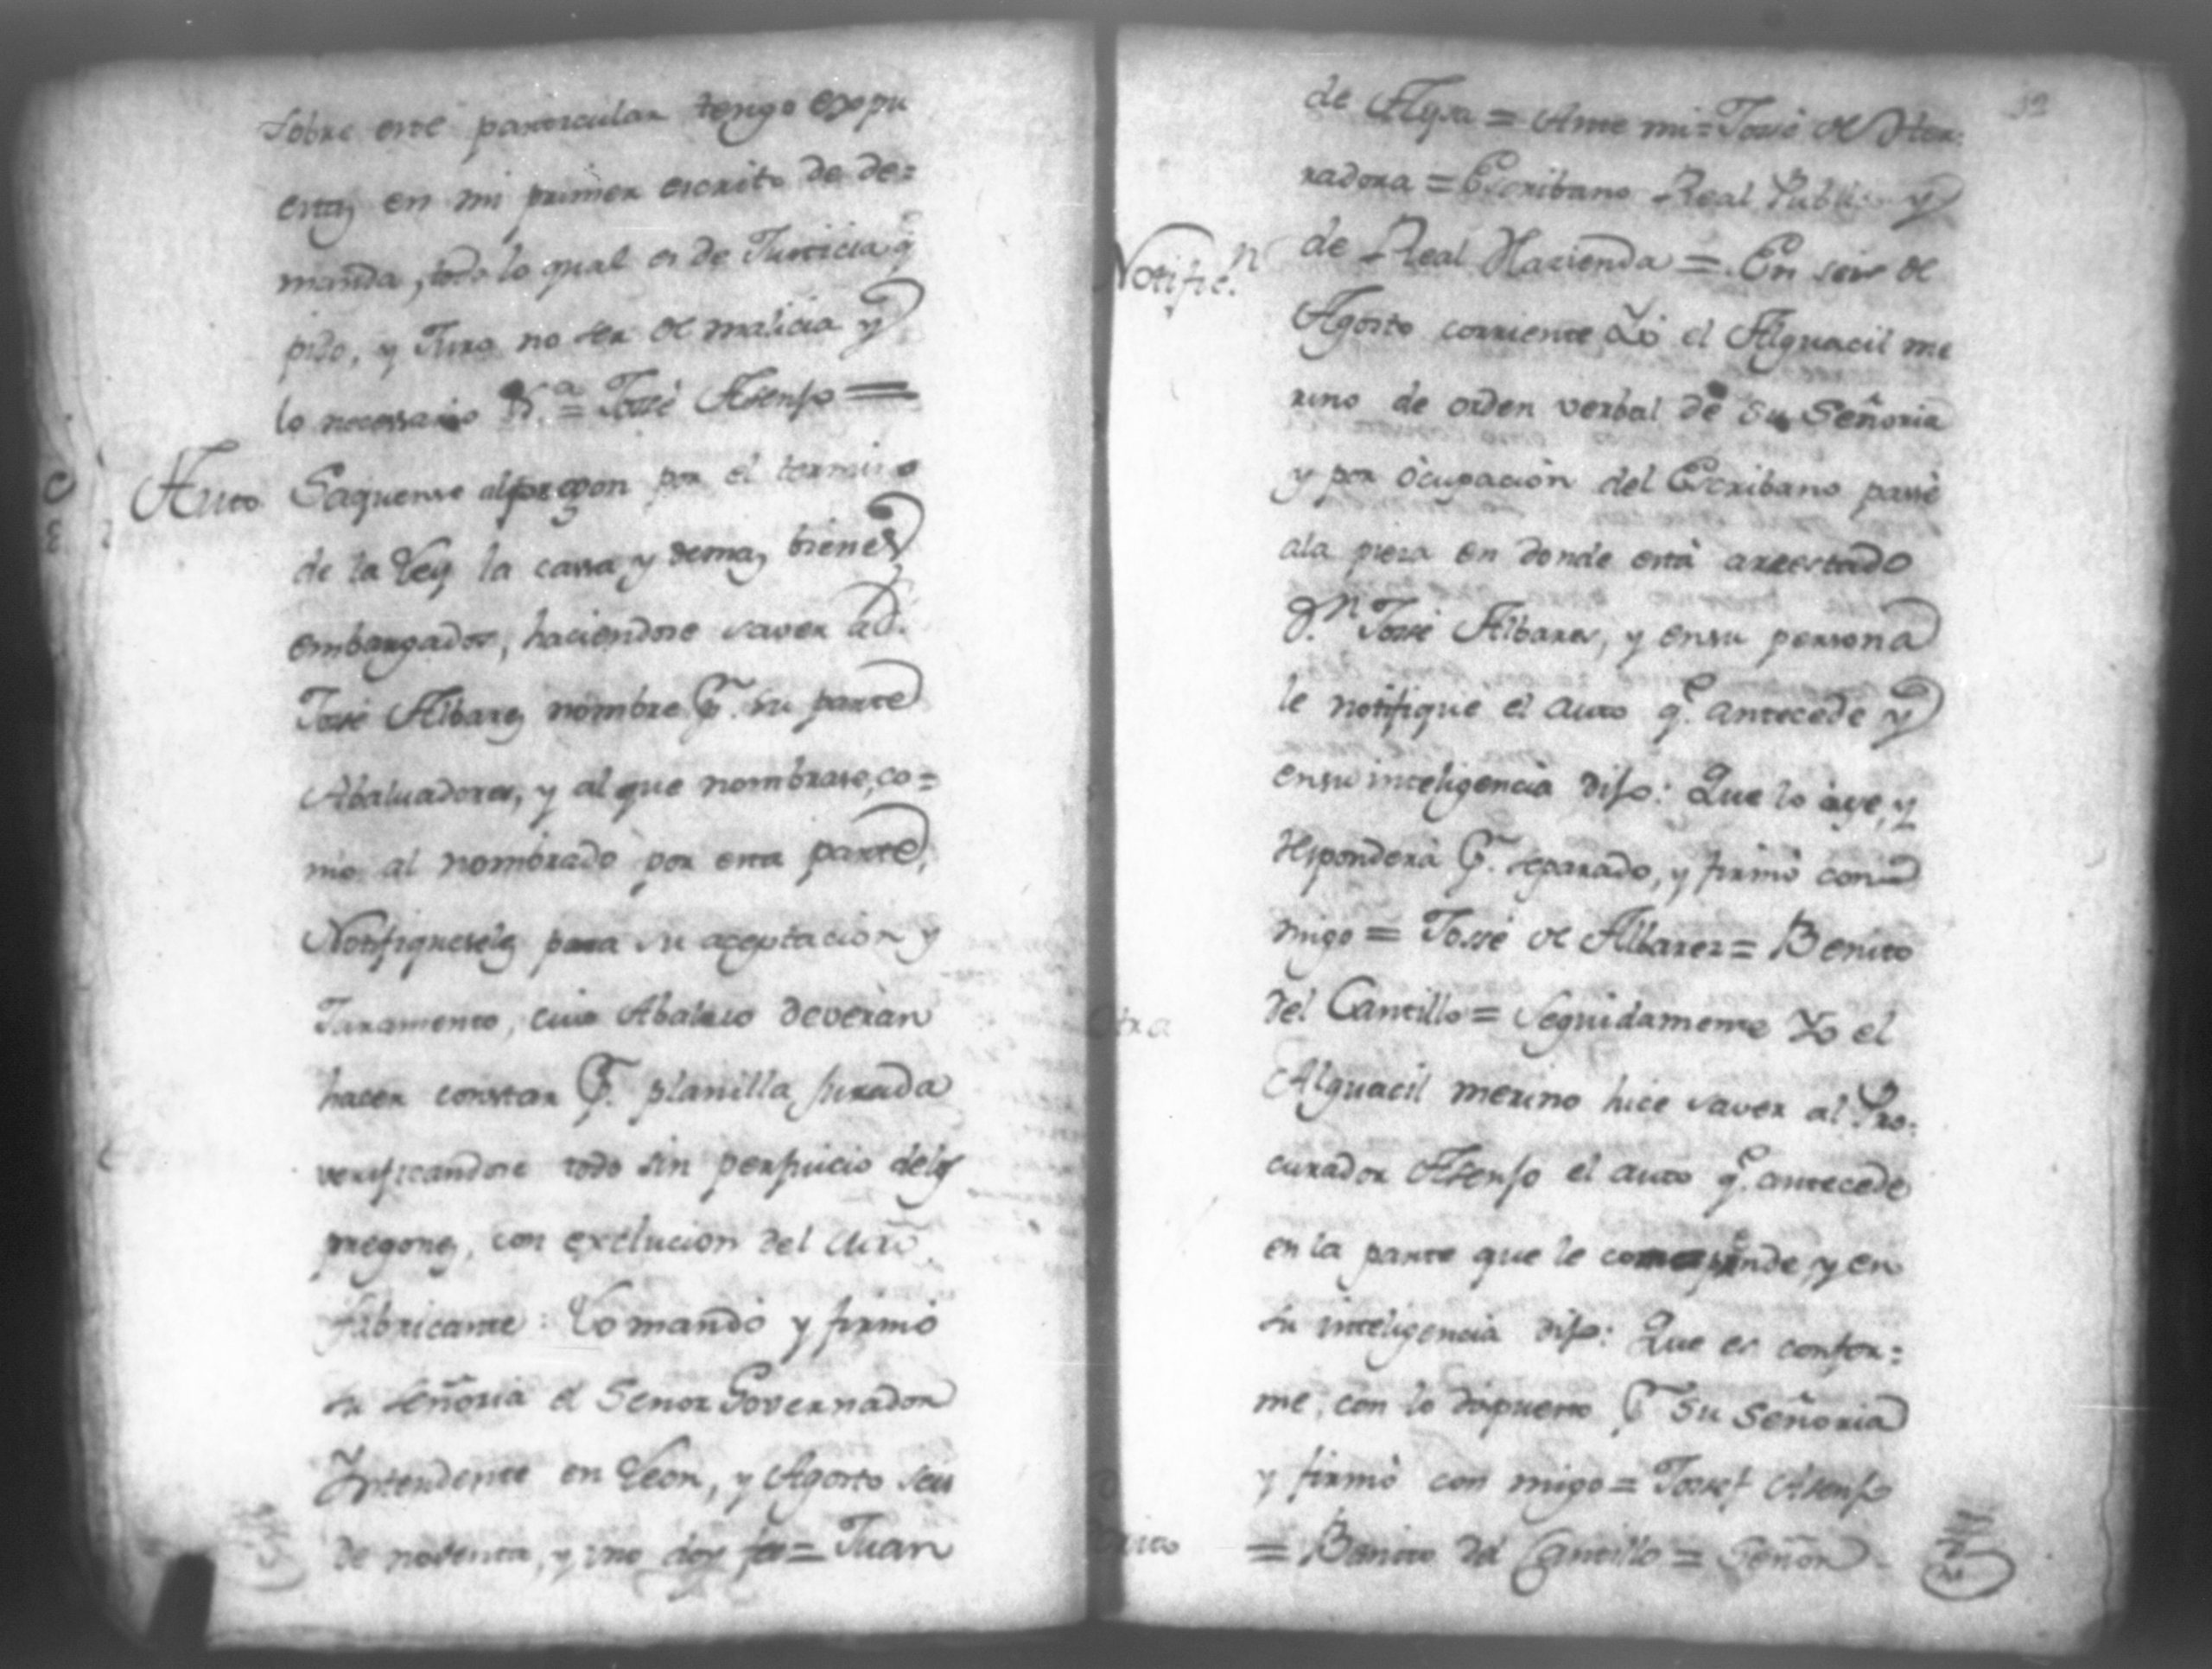 sobre este particular tengo expu
estas en mi primer escrito de de=
manda, todo lo qual es de Justicia q.e
pido, y Juro no ser de malicia y
lo necessario V.a = Josse Asenso =
Auto Saquense al pregon por el termino
de la Ley la cassa y demas bienes
embargados, haciendose saver a D.
Josse Albarez nombre P. su parte
Abaluadores, y al que nombrase, co=
mo al nombrado por esta parte,
Notifiqueseles para su aceptacion y
Juramento, cuio Abaluo deveràn
hacer constar P. planilla jurada
verificandose todo sin perjuicio delos
pregones, con exclucion del
fabricante: Lo mandó y firmó
su señoria el Senor Governador
Intendente en Leon, y Agosto seis
de noventa, y uno doy fee = Juan
32
de Aysa = Ante mi = Josse de Her=
radora = Escribano Real Publico y
de Real Hacienda = En seis de
Notific.n
Agosto corriente Yo el Alguacil me
rino de orden verbal de su Señoria
y por òcupaciòn del Escribano passè
ala pieza en donde està arrestado
D.n Josse Albares, y ensu persona
le notifiquè el auto q.e antecede y
ensu inteligencia dijo: Que lo òye, y
responderà P. separado, y firmò con
migo = Josse de Albarez = Benito
del Cantillo = Seguidamente Yo el
Otra
Alguacil merino hice saver al Pro=
curador Asenjo el auto q.e antecede
en la parte que le corresponde, y en
su inteligencia dijo: Que es confor=
me, con lo dispuesto P. su Señoria
y firmò con migo = Josef Asenjo
= Benito del Cantillo = Señor